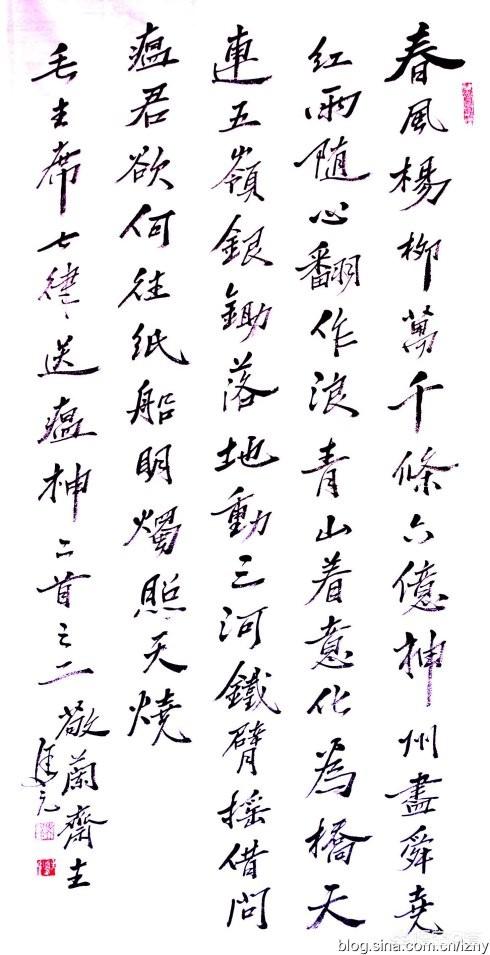 春風楊柳萬千條六億神州盡舜堯
紅雨隨心翻作浪青山着意化為橋天
連五嶺銀鋤落地動三河鐵臂搖借問
瘟君欲何往紙船明燭照天燒
毛主席七律送瘟神二首之二
敬蘭齋主
blog.sina.com.cn/izhy